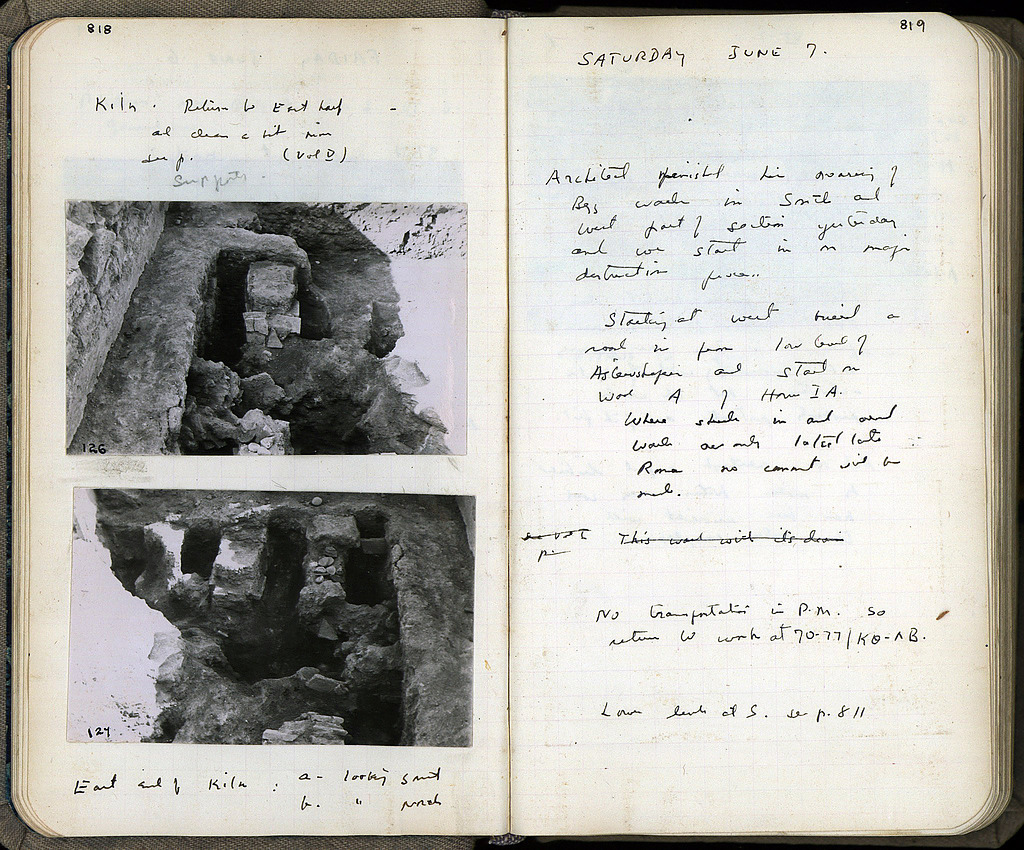 818
Kiln. Return to East half -
and clean a bit more
See p. (Vol V)
Supports.
126
127
East end of Kiln : a- looking South
b. " north
819
SATURDAY JUNE 7.
Architect finished his drawing of
Byz walls in South and
West part of section yesterday
and we start in on major
destruction
Starting at west build a
road in from low level of
and start on
Wall A of House IA.
Where sherds in and around
walls are only latest late
Roman no comment will be
made.
p.
This wall with its drain
No transportation in P.M. so
return to work at 70-77/KΘ-ΛB.
Lower levels at S. see p. 811